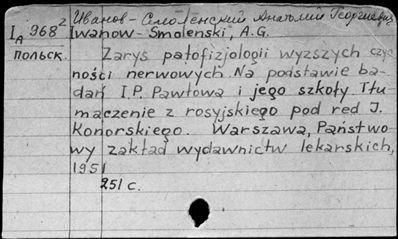 Иванов-Смоленский Анатолий Георгиевич
I A 968² Iwanow-Smolenski, A.G.
польск. Zarys patofizjologii wyższych czyn
ności nerwowych. Na podstawie ba-
dań I.P. Pawłowa i jego szkoły. Tłu
maczenie z rosyjskiego pod red J.
Konorskiego. Warszawa, Państwo
wy zakład wydawnictw lekarskich,
1951
251 с.